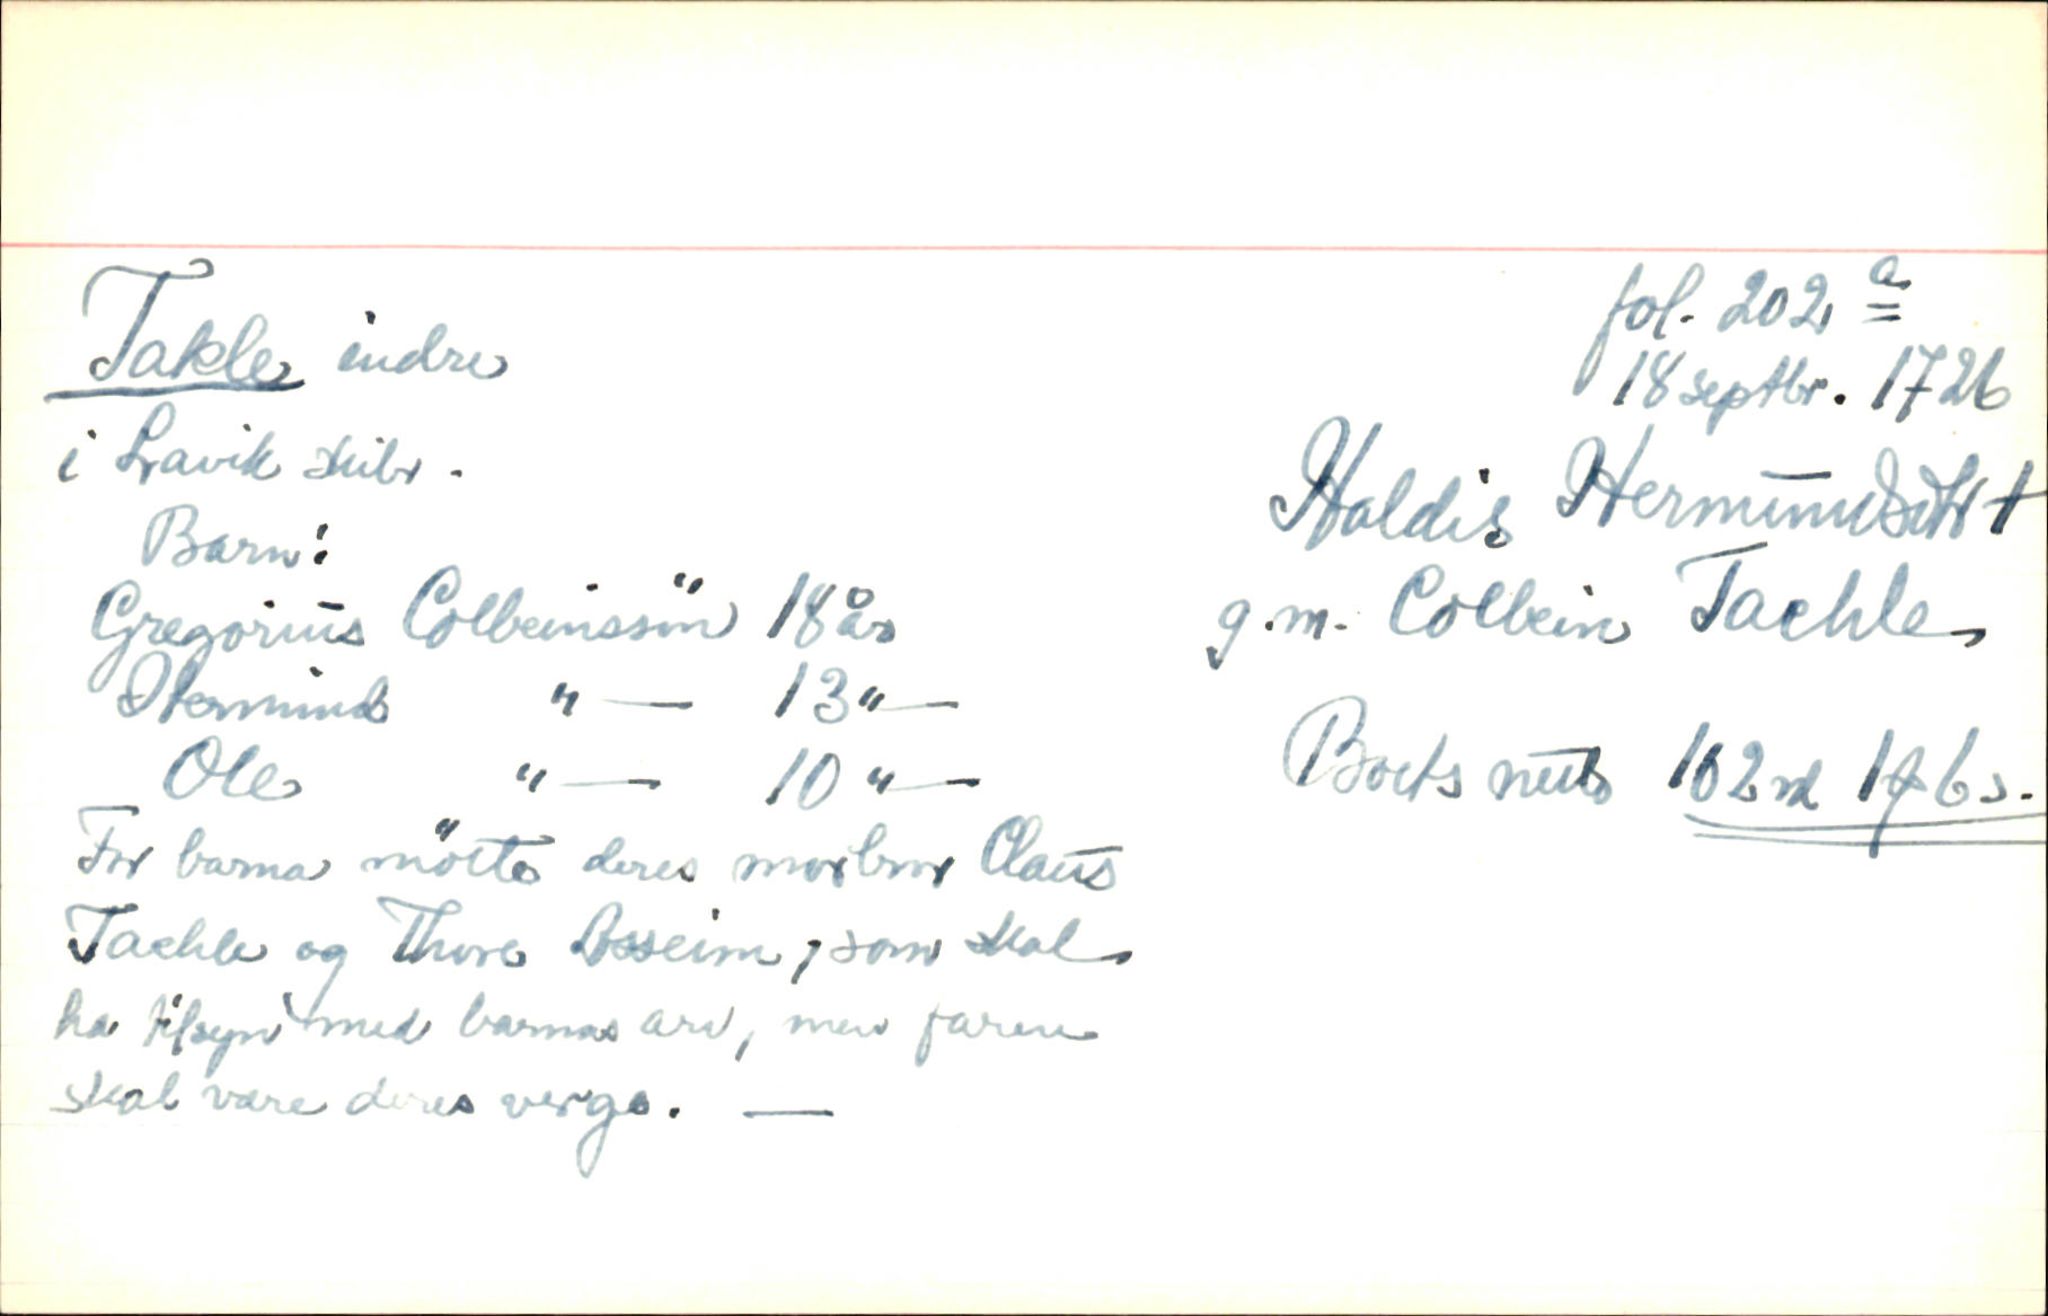 Takle indre
i Lavik skibr.
Barn:
Gregorius Colbeinssön 18 år
Hermund " — 13 " —
Ole " — 10 " —
For barna mötte deres morbror Claus
Tachle og Thore Asseim, som skal
ha tilsyn med barnas arv, men faren
skal være deres verge. —
fol. 202 a
18 septbr. 1726
Haldis Hermundsdtr †
g.m. Colbein Tachle
Boets netto 102 rd 1 6 s.